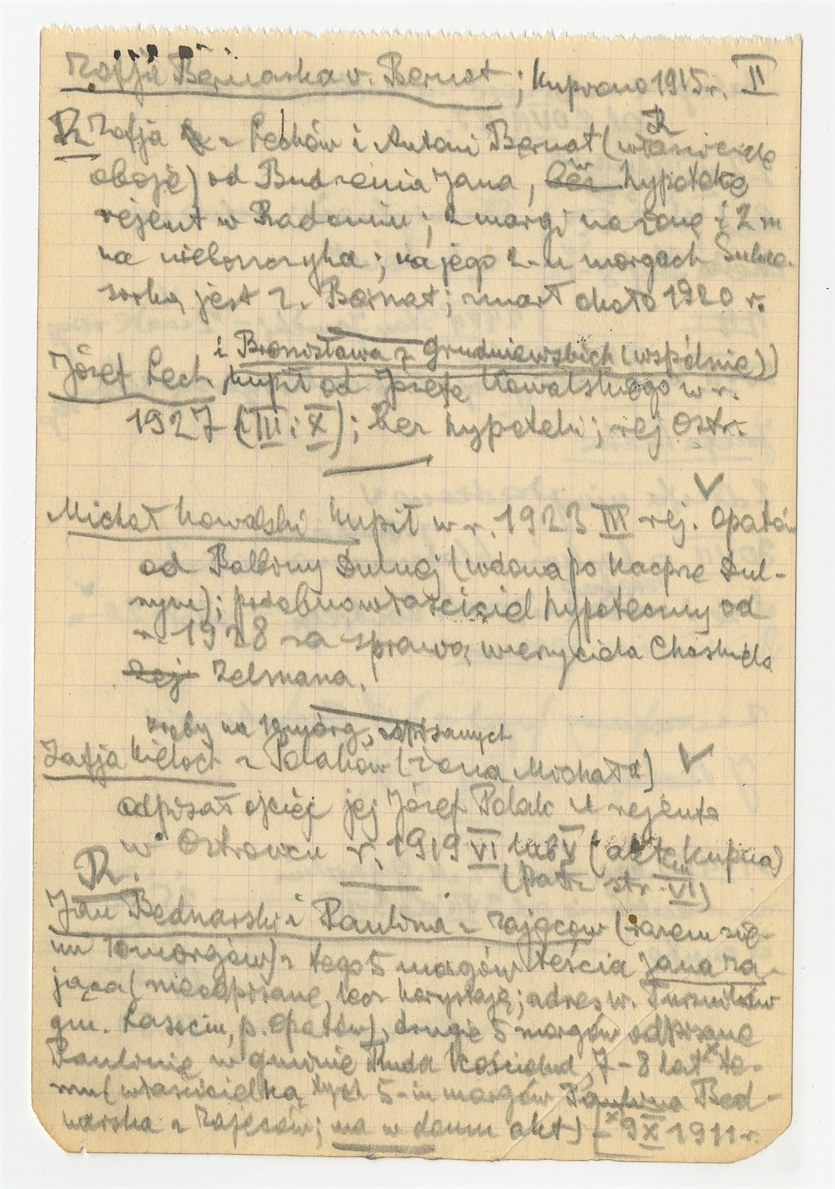 Zofja Bernaska v. Bernat; kupiono 1915 r. II
R Zofja z Lechów i Antoni Bernat (właściciele
oboje) od Budzenia Jana, bez hypoteki
rejent w Radomiu; 2 morgi na żonę i 2 m
na nieboszczyka; na jego 2-u morgach Sukce-
sorką jest Z. Bernat; zmarł około 1920 r.
i Bronisława z Grudniewskich (wspólnie))
Józef Lech kupił od Józefa Kowalskiego w r.
1927 (III i X); bez hypoteki; rej. Ostr.
Michał Kowalski kupił w r. 1923 III rej. Opatów
od Balbiny Dulnej (wdowa po Kacprze Dul-
nym); podobno właściciel hypoteczny od
r. 1928 za sprawą wierzyciela Chaskiela
Zelmana.
na 10 mórg, odpisanych
Zofja Kieloch z Polaków (żona Michała)
odpisał ojciec jej Józef Polak u rejenta
w Ostrowcu r. 1919 VI lub V (akt kupna)
(patrz str. VI)
R.
Jan Bednarski i Paulina z Zającow (razem zie-
mi 10 morgów) z tego 5 morgów teścia Jana Za-
jąca (nieodpisane, lecz korzystają; adres w.
gm. Łasocin, p. Opatów), drugie 5 morgów odpisane
Paulinie w gminie Ruda Kościelna, 7-8 lat x te-
mu (właścicielką tych 5-iu morgów Paulina Bed-
narska z Zajęców; ma w domu akt) [x 9 X 1911 r.